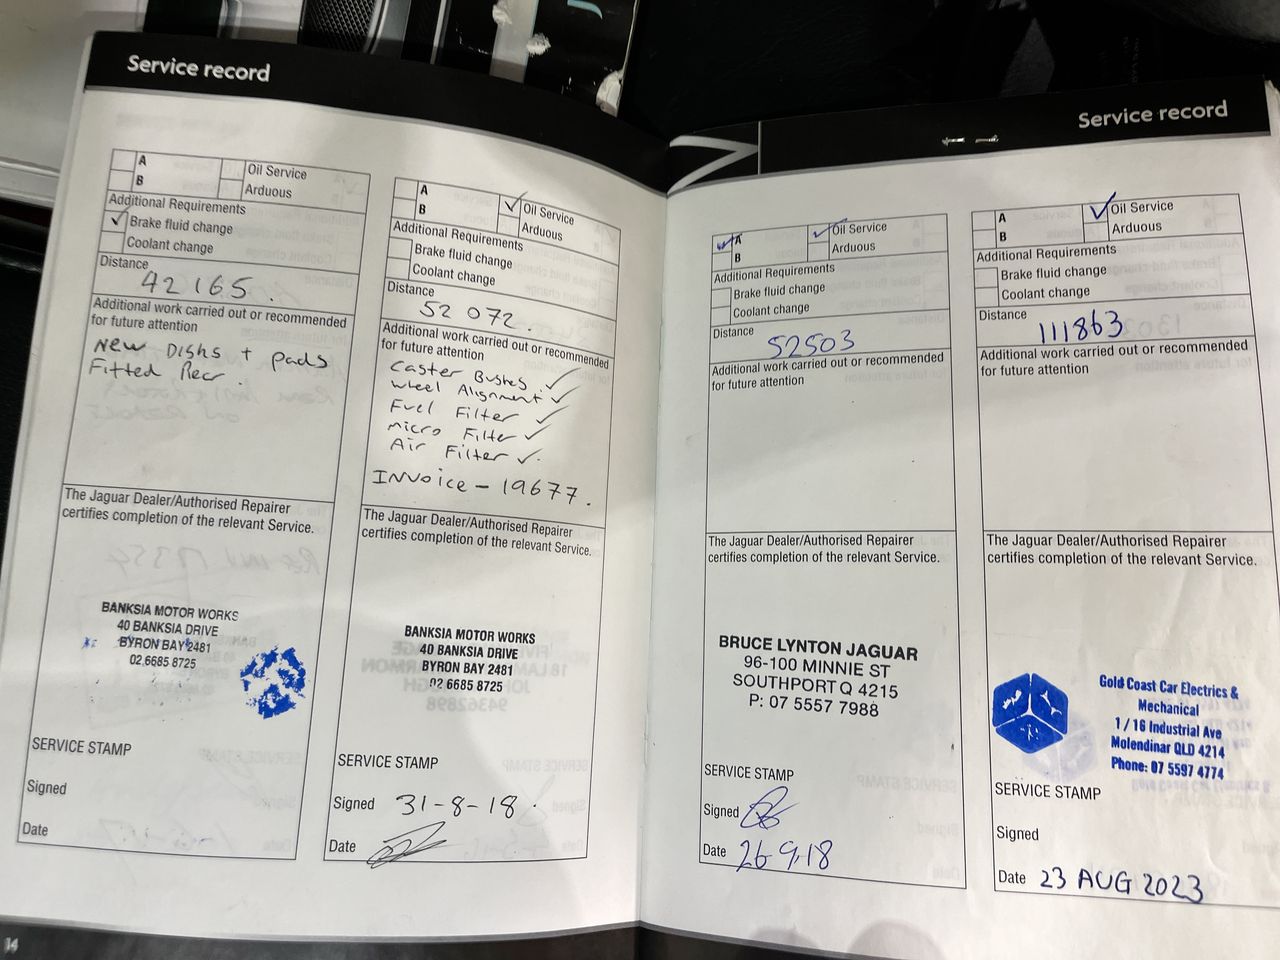 Service record
A
B
Oil Service
Arduous
Additional Requirements
✓ Brake fluid change
Coolant change
Distance
42165.
Additional work carried out or recommended
for future attention
New Disks + pads
Fitted Rear.
The Jaguar Dealer/Authorised Repairer
certifies completion of the relevant Service.
BANKSIA MOTOR WORKS
40 BANKSIA DRIVE
BYRON BAY 2481
02 6685 8725
SERVICE STAMP
Signed
Date
14
A
B
✓ Oil Service
Arduous
Additional Requirements
Brake fluid change
Coolant change
Distance
52 072.
Additional work carried out or recommended
for future attention
Caster Bushes ✓
Wheel Alignment ✓
Fuel Filter ✓
Micro Filter ✓
Air Filter ✓.
Invoice - 19677.
The Jaguar Dealer/Authorised Repairer
certifies completion of the relevant Service.
BANKSIA MOTOR WORKS
40 BANKSIA DRIVE
BYRON BAY 2481
02 6685 8725
SERVICE STAMP
Signed 31-8-18.
Date
Service record
✓ A
B
✓ Oil Service
Arduous
Additional Requirements
Brake fluid change
Coolant change
Distance
52503
Additional work carried out or recommended
for future attention
The Jaguar Dealer/Authorised Repairer
certifies completion of the relevant Service.
BRUCE LYNTON JAGUAR
96-100 MINNIE ST
SOUTHPORT Q 4215
P: 07 5557 7988
SERVICE STAMP
Signed
Date 26 9.18
A
B
✓ Oil Service
Arduous
Additional Requirements
Brake fluid change
Coolant change
Distance
111863
Additional work carried out or recommended
for future attention
The Jaguar Dealer/Authorised Repairer
certifies completion of the relevant Service.
Gold Coast Car Electrics &
Mechanical
1 / 16 Industrial Ave
Molendinar QLD 4214
Phone: 07 5597 4774
SERVICE STAMP
Signed
Date 23 AUG 2023